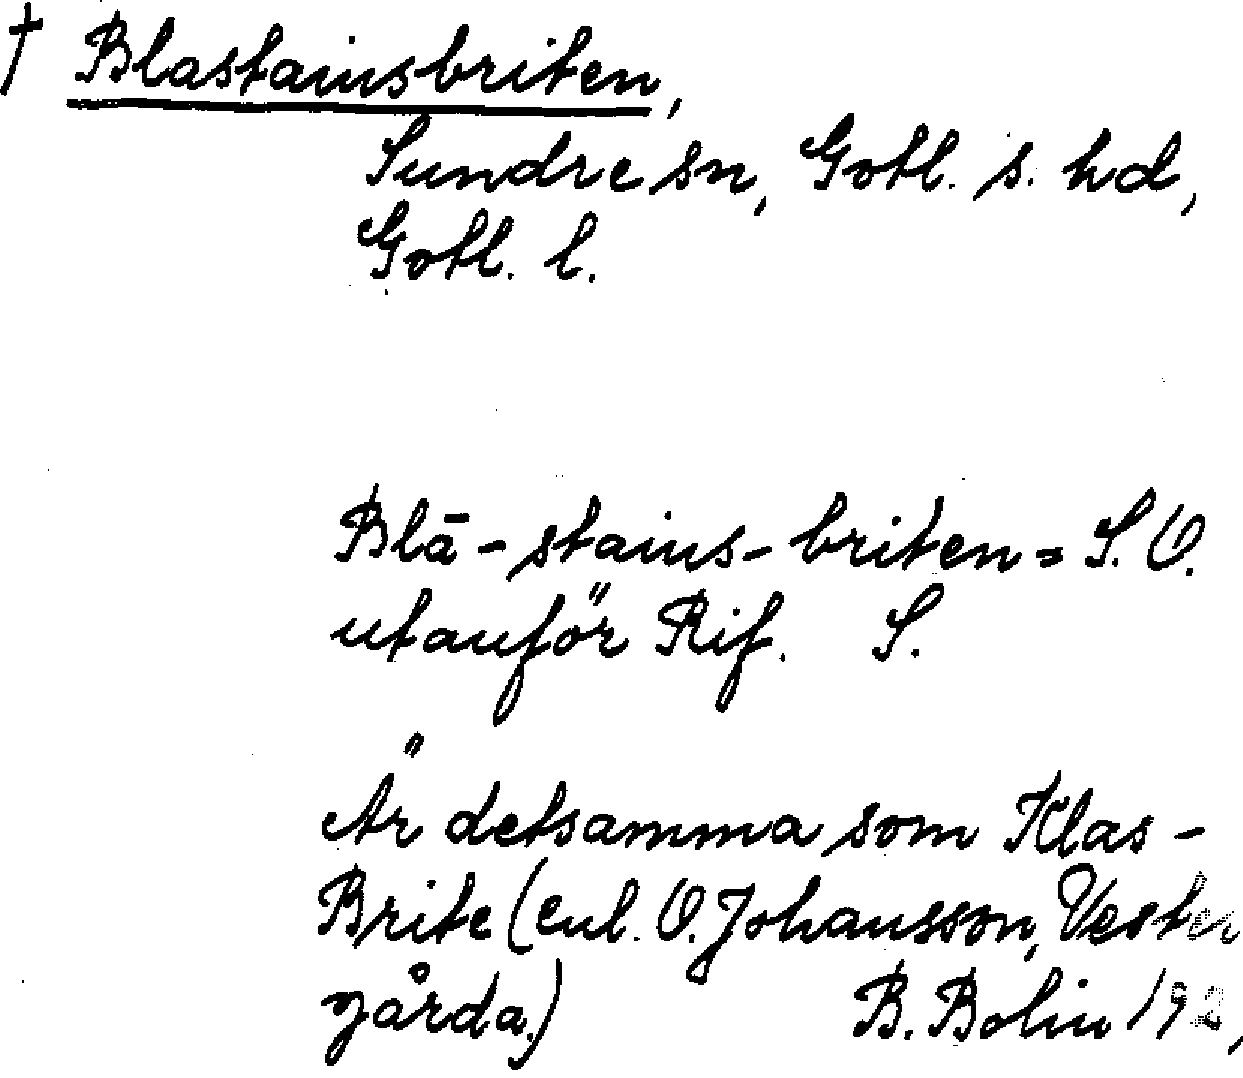 † Blastainsbriten,
Sundre sn, Gotl. s. hd,
Gotl. l.
Blā-stains-briten = S.O.
utanför Rif. S.
Är detsamma som Klas-
Brite (enl. O. Johansson, Vester
gårda.) B. Bolin 192